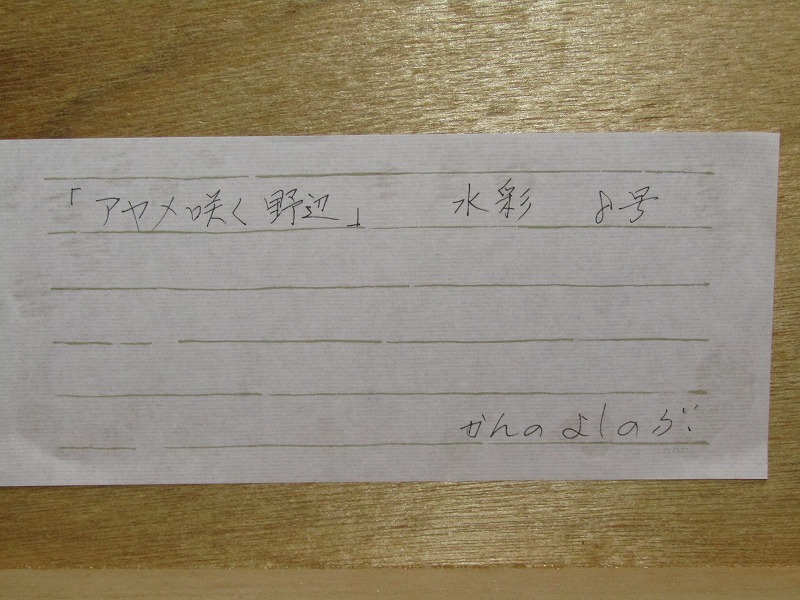 「アヤメ咲く野辺」 水彩 8号
かんの よしのぶ